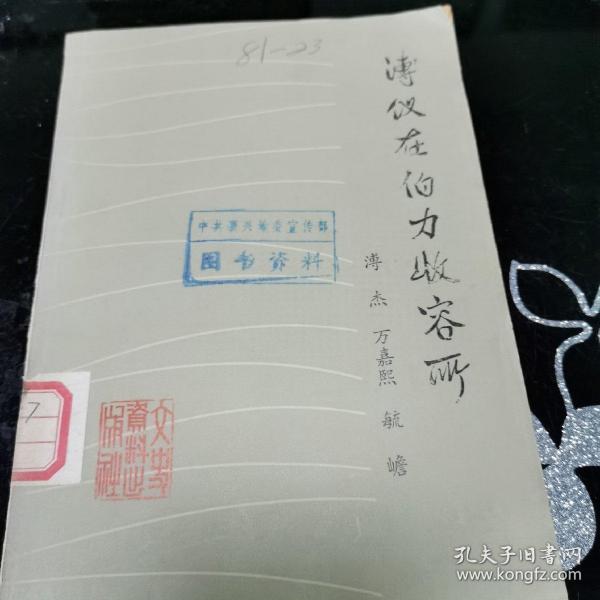 81-23
溥仪在伯力收容所
溥杰 万嘉熙 毓嶦
图书资料
文史
资料出
版社
7
孔夫子旧书网
www.kongfz.com